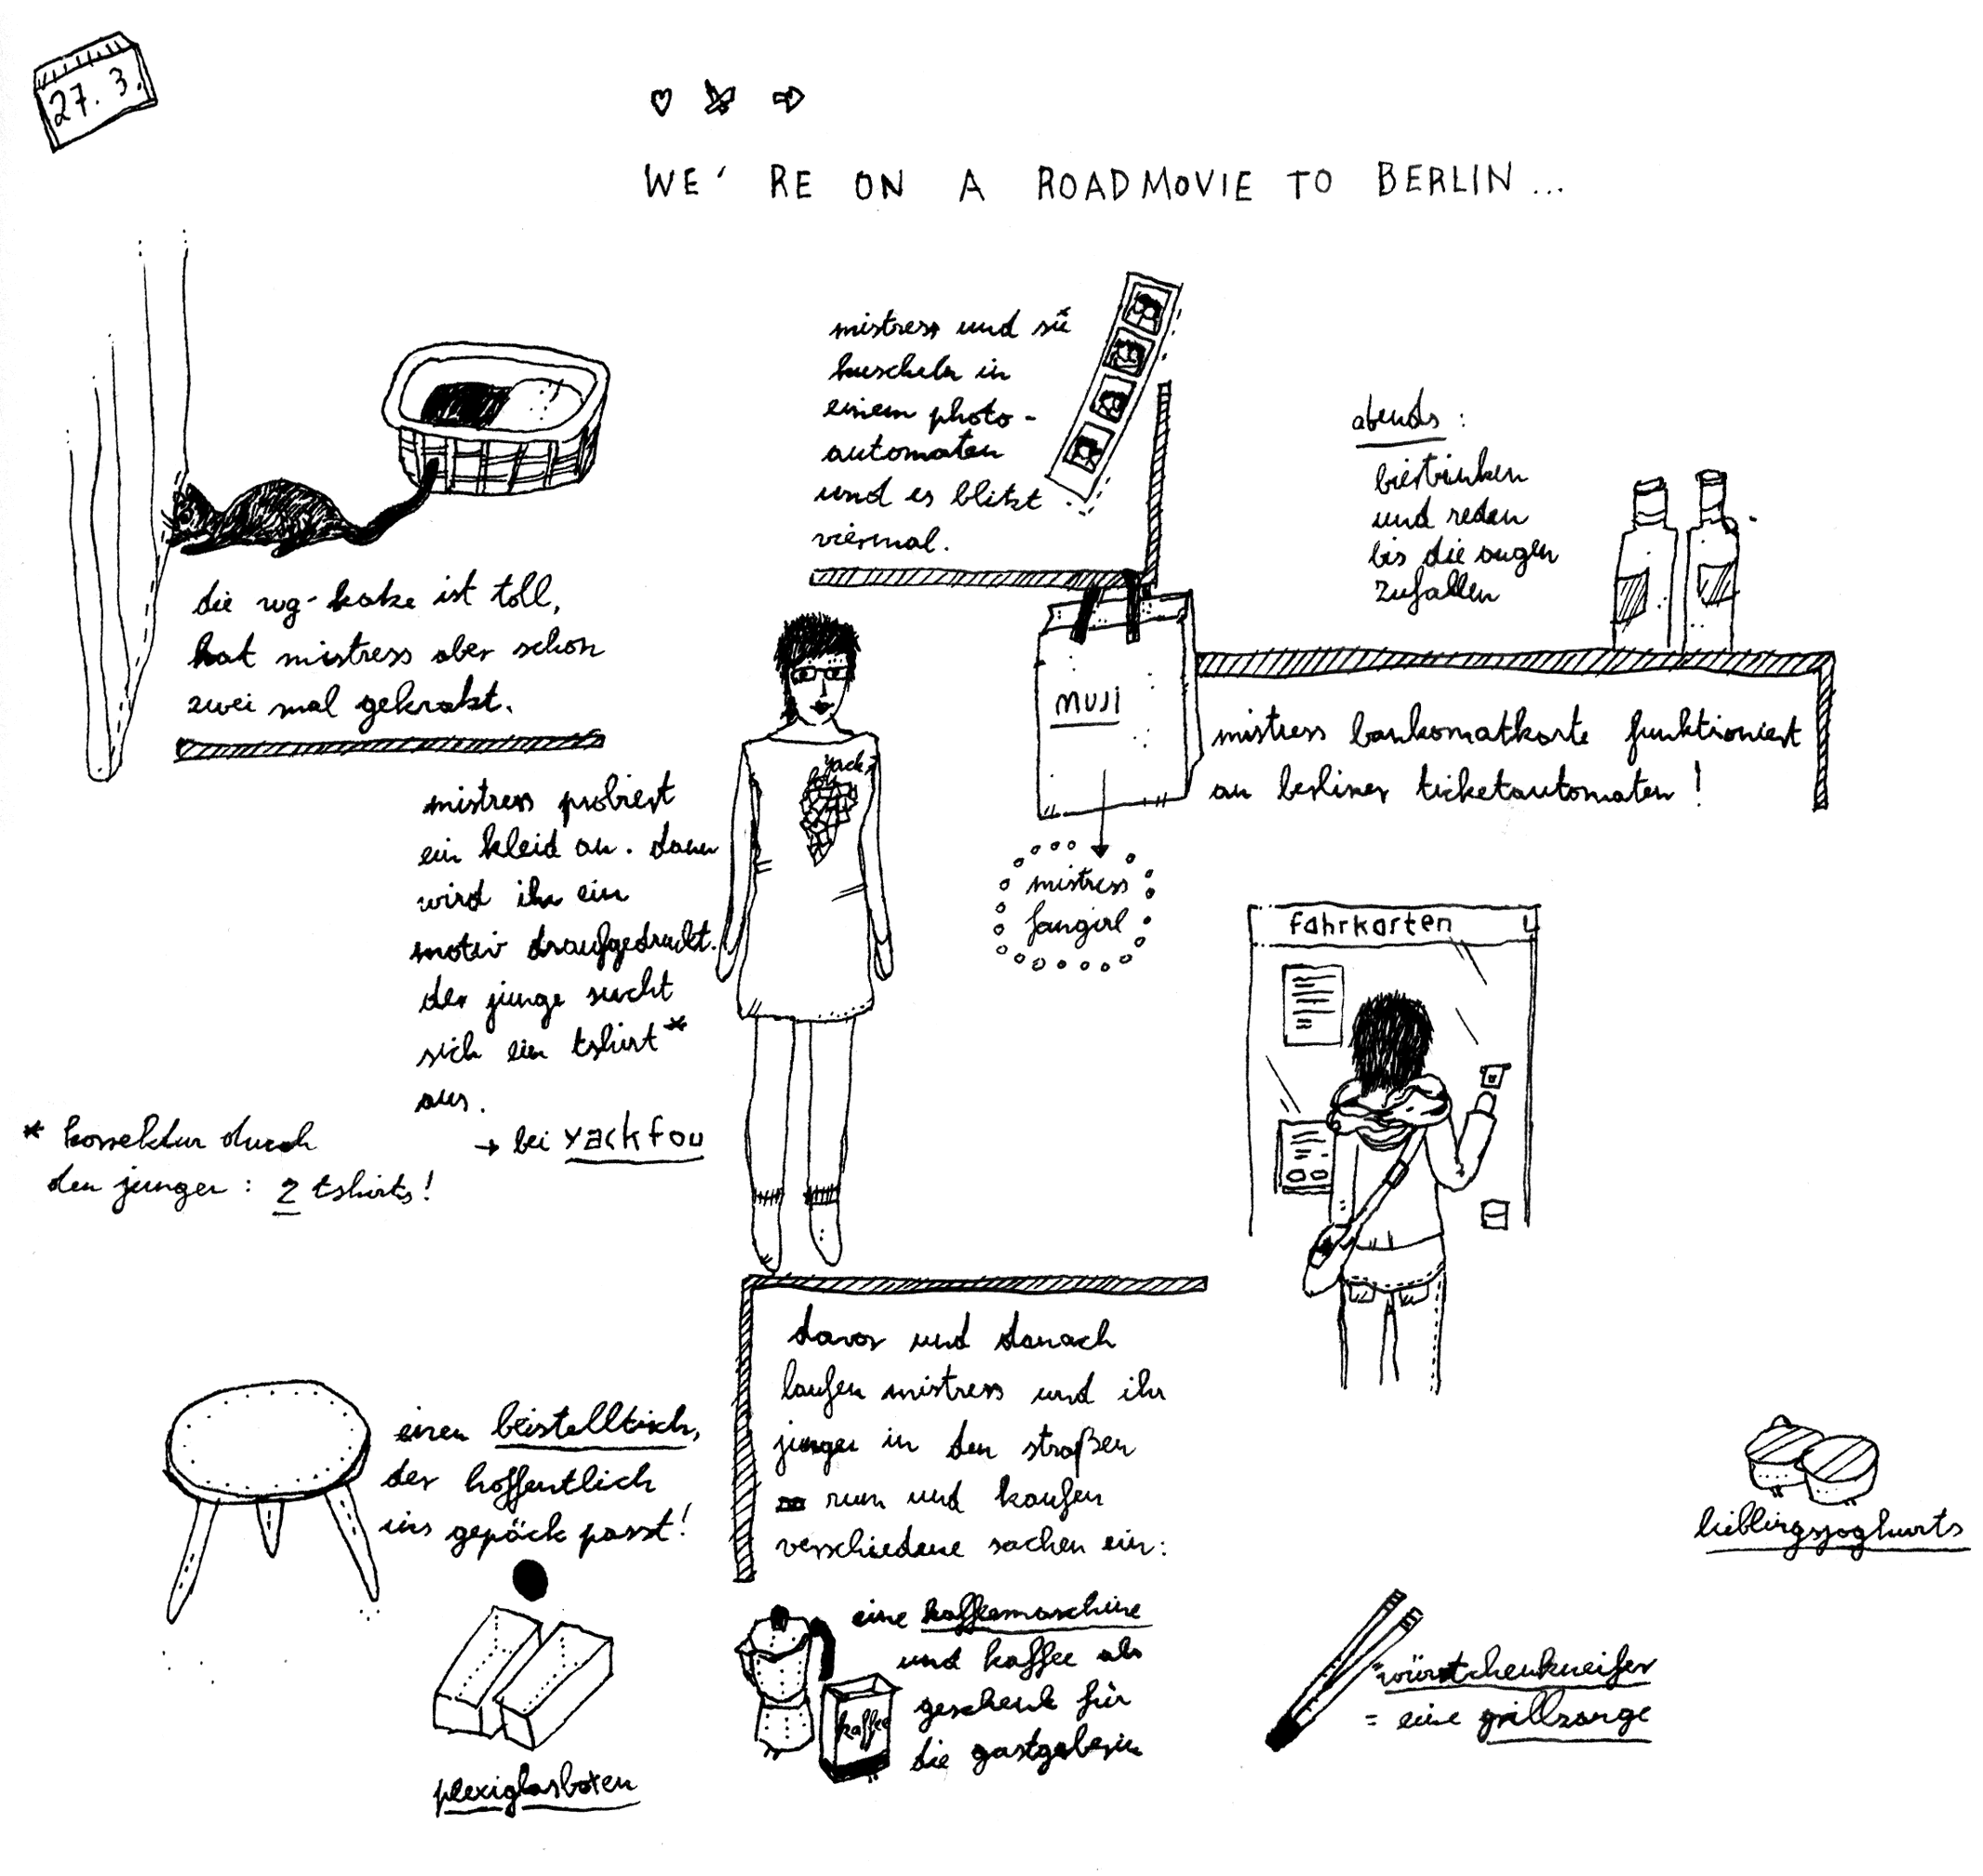 27. 3.
WE'RE ON A ROADMOVIE TO BERLIN...
die wg-katze ist toll,
hat mistress aber schon
zwei mal gekratzt.
mistress und sü
kuscheln in
einem photo-
automaten
und es blitzt
viermal.
abends:
biertrinken
und reden
bis die augen
zufallen
muji
mistress
fangirl
mistress bankomatkarte funktioniert
an berliner ticketautomaten!
yack
fou
mistress probiert
ein kleid an. dann
wird ihr ein
motiv draufgedruckt.
der junge sucht
sich ein tshirt*
aus.
→ bei yackfou
* korrektur durch
den jungen: 2 tshirts!
fahrkarten
davor und danach
laufen mistress und ihr
junge in den straßen
rum und kaufen
verschiedene sachen ein:
einen beistelltisch,
der hoffentlich
ins gepäck passt!
plexiglasboxen
eine kaffeemaschine
und kaffee als
geschenk für
die gastgeberin
kaffee
lieblingsjoghurts
würstchenkneifer
= eine grillzange